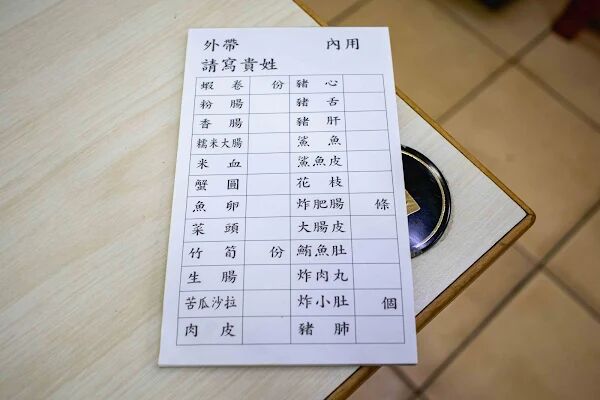 外帶 內用
請寫貴姓
蝦卷 份 豬心
粉腸 豬舌
香腸 豬肝
糯米大腸 鯊魚
米血 鯊魚皮
蟹圓 花枝
魚卵 炸肥腸 條
菜頭 大腸皮
竹筍 份 鮪魚肚
生腸 炸肉丸
苦瓜沙拉 炸小肚 個
肉皮 豬肺